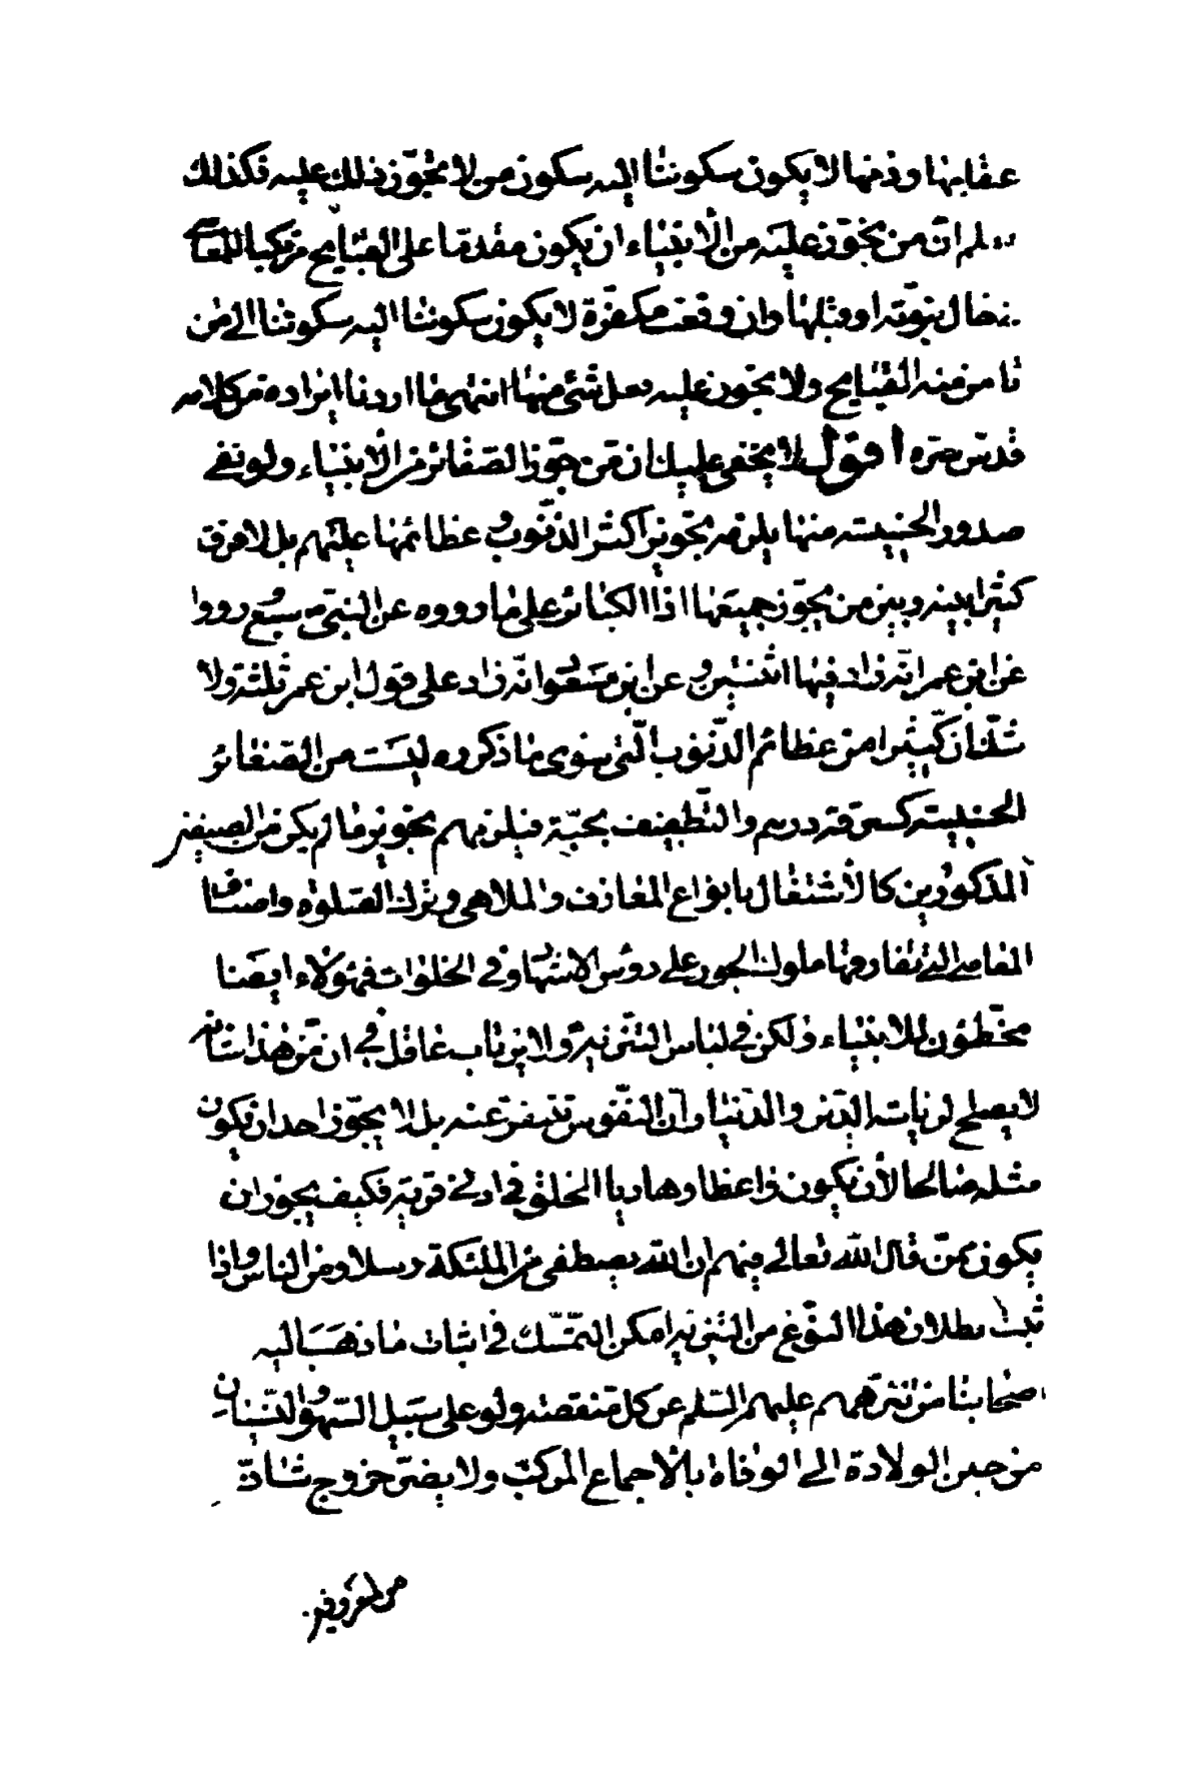 عقابها وذمها لا يكون سكوننا اليه سكون من لا نجوّز ذلك عليه فكذلك
نعلم انّ من نجوّز عليه من الأنبياء ان يكون مقدما على القبايح مرتكبا للمعاصي
في حال نبوّته او قبلها وان وقعت مكفّرة لا يكون سكوننا اليه سكوننا الى من
نامن منه القبايح ولا نجوّز عليه فعل شئ منها انتهى ما اردنا ايراده من كلامه
قدّس سرّه اقول لا يخفى عليك ان من جوّز الصغائر من الأنبياء ولو نفى
صدور الخسيسة منها يلزمه تجويز اكثر الذنوب وعظائمها عليهم بل لا فرق
كثيرا بينه وبين من يجوّز جميعها اذ الكبائر على ما رووه عن النبي ص سبع ورووا
عن ابن عمر انّه زاد فيها اثنتين وعن ابن مسعود انّه زاد على قول ابن عمر ثلثة ولا
شكّ ان كثيرا من عظائم الذنوب الّتي سوى ما ذكروه ليست من الصغائر
الخسيسة كسرقة درهم والتطفيف بحبّة فيلزمهم تجويز ما لم يكن من الصنفين
المذكورين كالأشتغال بانواع المعازف والملاهي وترك الصلوة واصناف
المعاصي التي تقارفها ملوك الجور على رؤس الاشهاد وفي الخلوات فهؤلاء ايضا
مخطئون للانبياء ولكن في لباس التنزيه ولا يرتاب عاقل في ان من هذا شأنه
لا يصلح لرياسة الدّين والدّنيا وانّ النفوس تتنفر عنه بل لا يجوّز احد ان يكون
مثله صالحا لأن يكون واعظا وهاديا للخلق في ادنى قرية فكيف يجوز ان
يكون ممّن قال الله تعالى فيهم ان الله يصطفى من الملئكة رسلا ومن الناس واذا
ثبت بطلان هذا النوع من التنزيه امكن التمسّك في اثبات ما ذهب اليه
اصحابنا من تنزههم عليهم السلم عن كل منقصة ولو على سبيل السهو والنسيان
من حين الولادة الى الوفاة بالأجماع المركب ولا يضرّ خروج شاذ